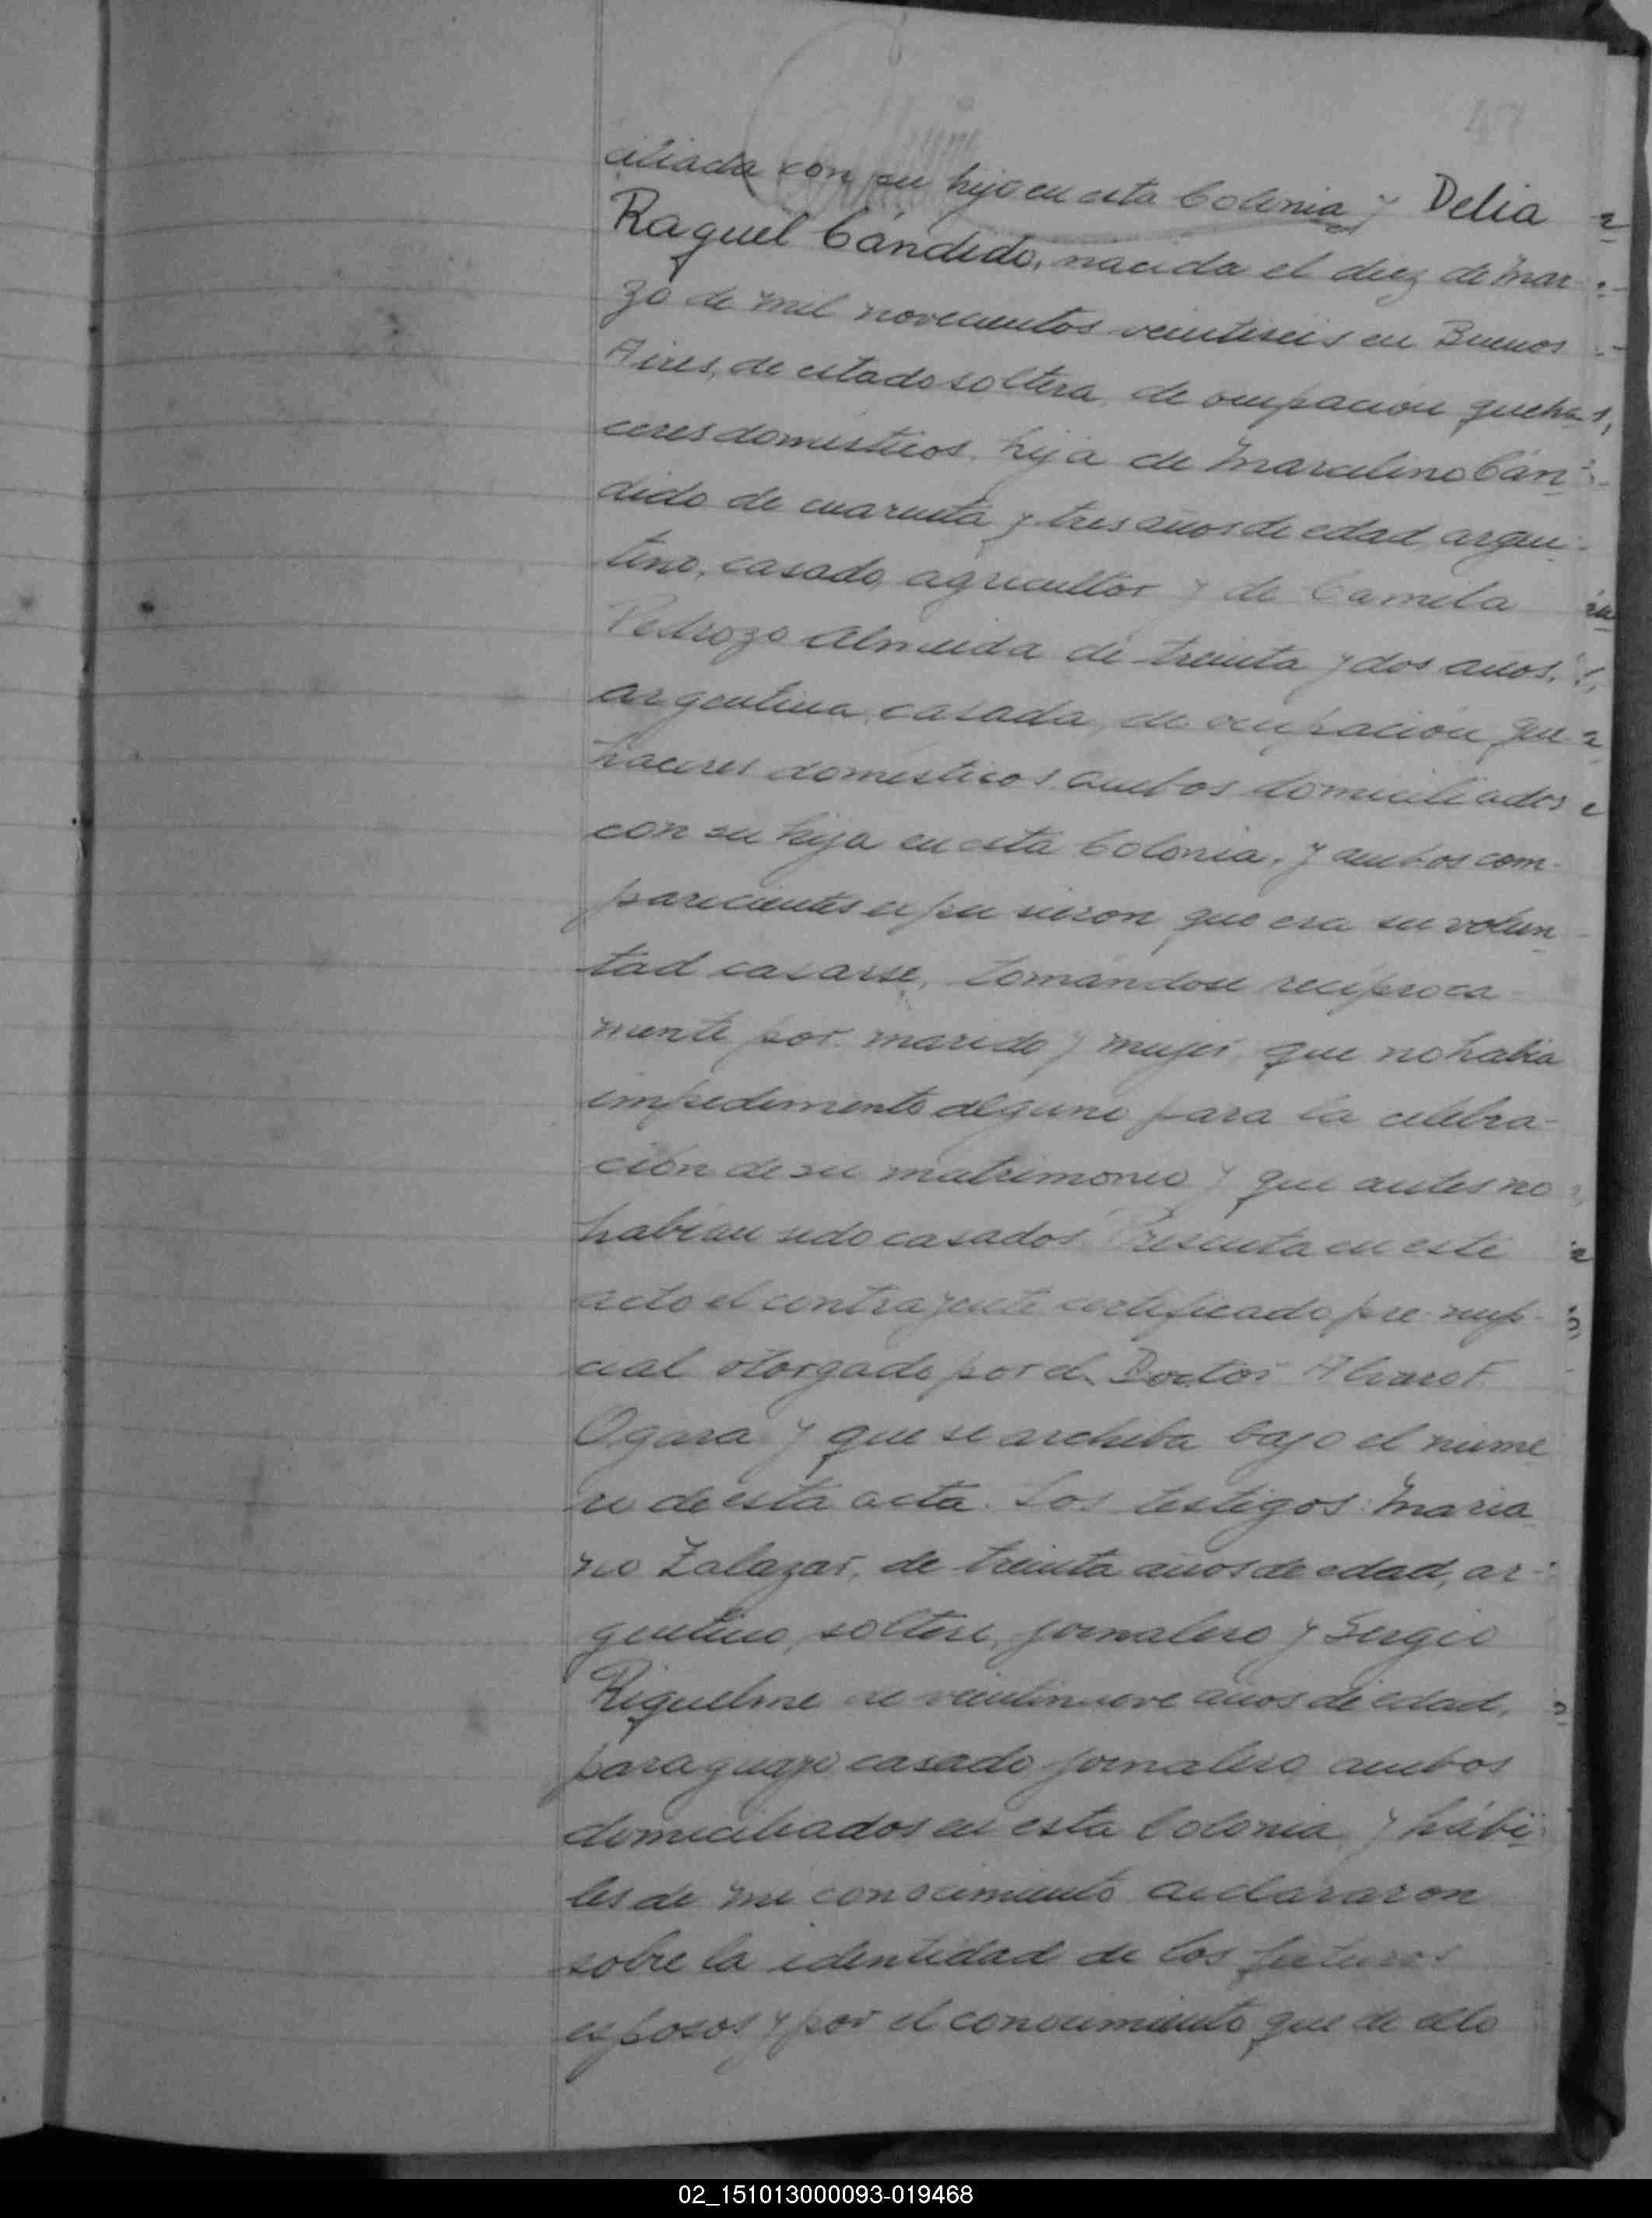 47
ciliada con su hijo en esta Colonia y Delia
Raquel Cándido, nacida el diez de Mar-
zo de mil novecientos veintiseis en Buenos
Aires, de estado soltera, de ocupación queha-
ceres domésticos, hija de Marcelino Cán-
dido de cuarenta y tres años de edad, argen-
tino, casado, agricultor y de Camila
Pedrozo Almeida de treinta y dos años,
argentina, casada, de ocupación que-
haceres domésticos, ambos domiciliados
con su hija en esta Colonia, y ambos com-
parecientes expusieron que era su volun-
tad casarse, tomándose reciproca-
mente por marido y mujer, que no habia
impedimento alguno para la celebra-
ción de su matrimonio y que antes no
habían sido casados. Presenta en este
acto el contrayente certificado pre-nup-
cial otorgado por el Doctor Alvaro F.
Ogara y que se archiba bajo el nume
ro de esta acta. Los testigos: Maria
no Zalazar, de treinta años de edad, ar-
gentino, soltero, jornalero y Sergio
Riquelme de veintinueve años de edad,
paraguayo, casado, jornalero, ambos
domiciliados en esta Colonia y hábi-
les de mi conocimiento declararon
sobre la identidad de los futuros
esposos y por el conocimiento que de ello
02_151013000093-019468